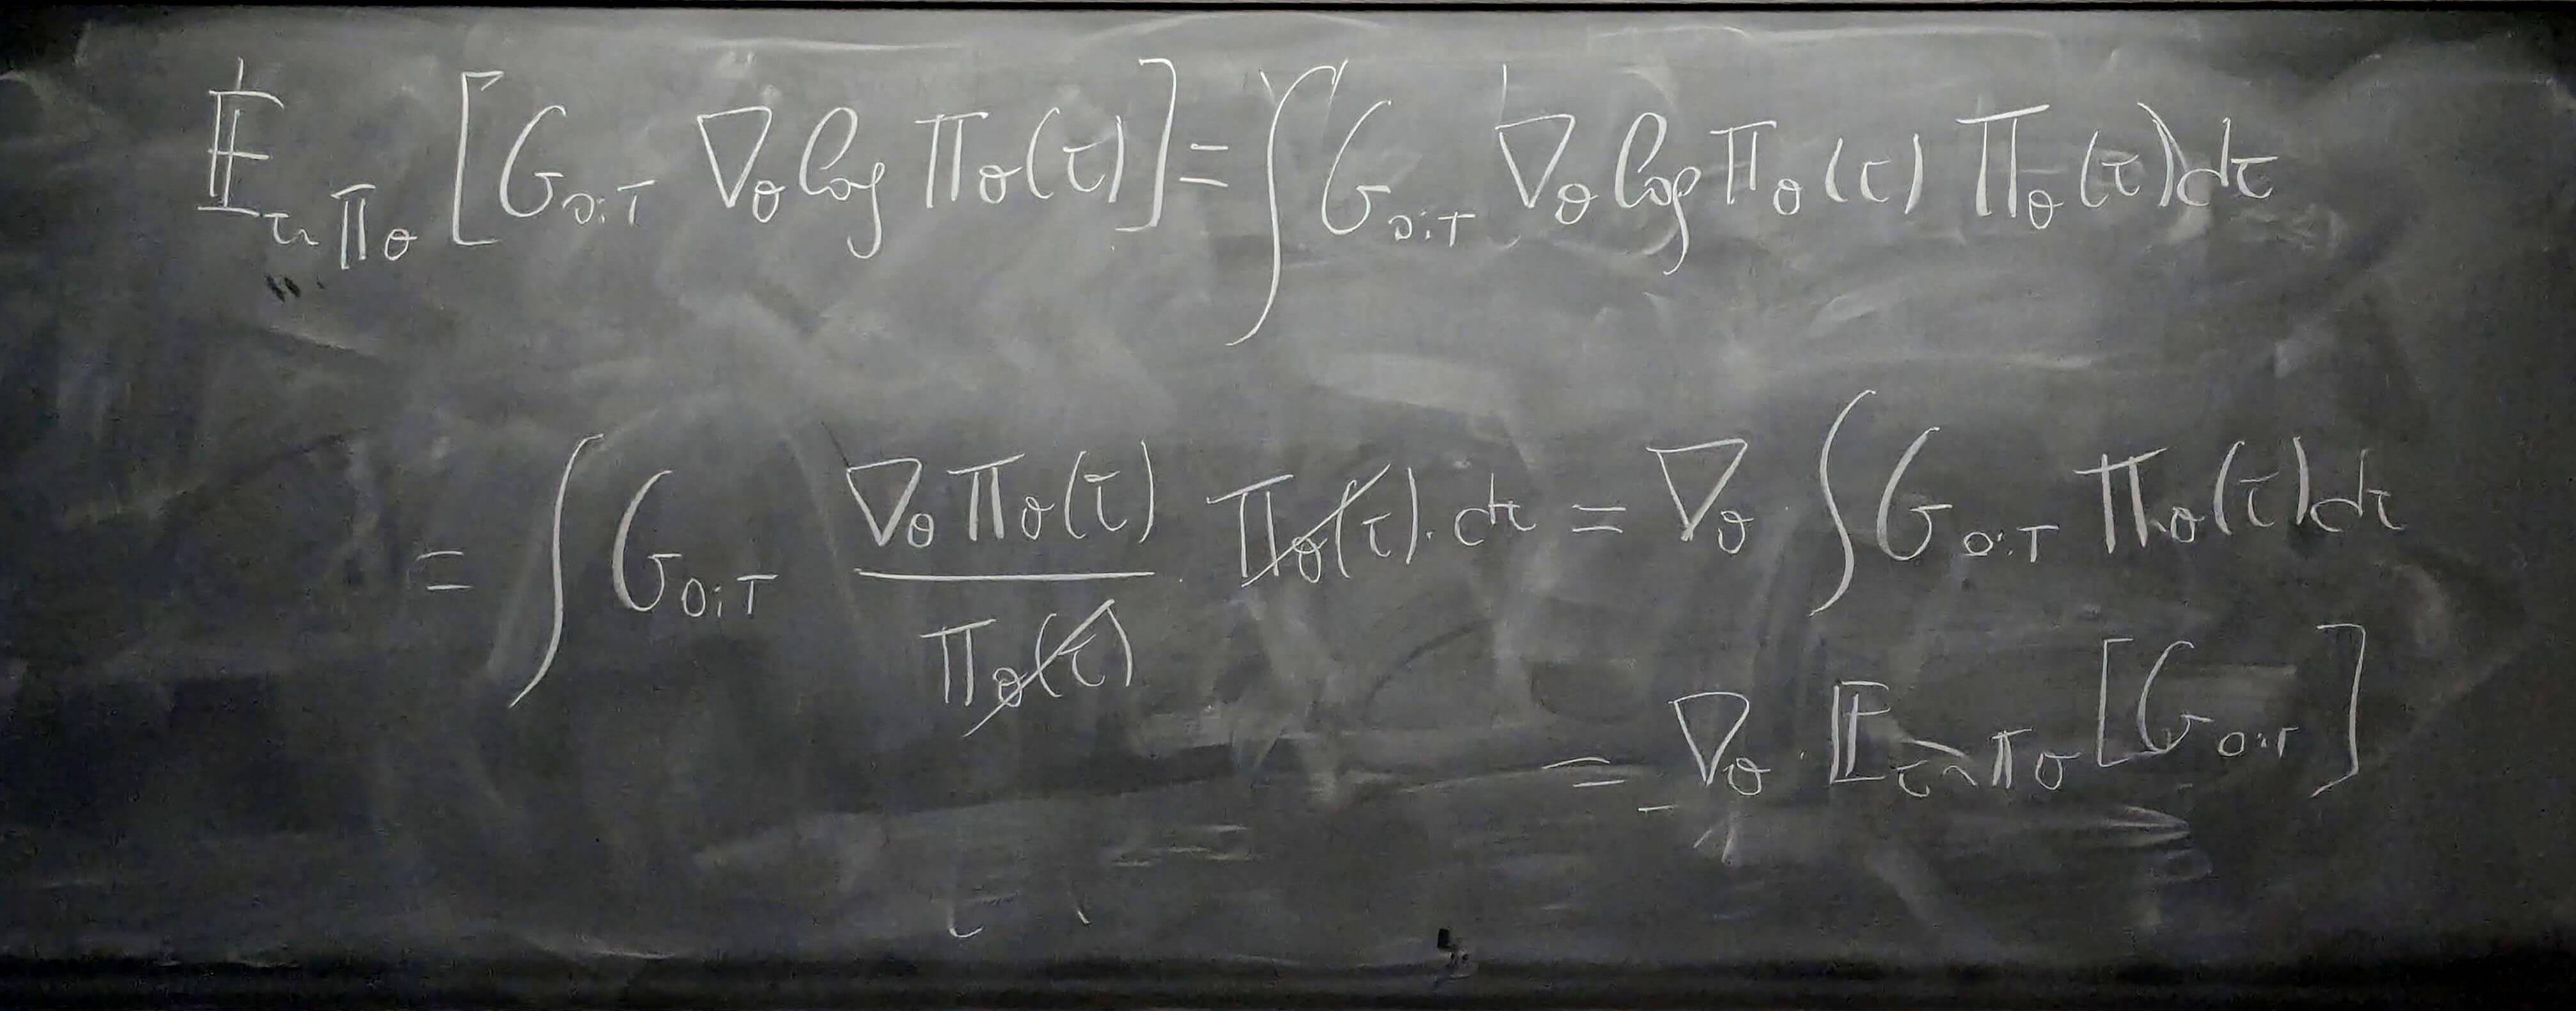 𝔼_{τ∼π_θ} [G_{0:T} ∇_θ log π_θ(τ)] = ∫ G_{0:T} ∇_θ log π_θ(τ) π_θ(τ) dτ
= ∫ G_{0:T} (∇_θ π_θ(τ) / π_θ(τ)) π_θ(τ) · dτ = ∇_θ ∫ G_{0:T} π_θ(τ) dτ
= ∇_θ 𝔼_{τ∼π_θ} [G_{0:T}]